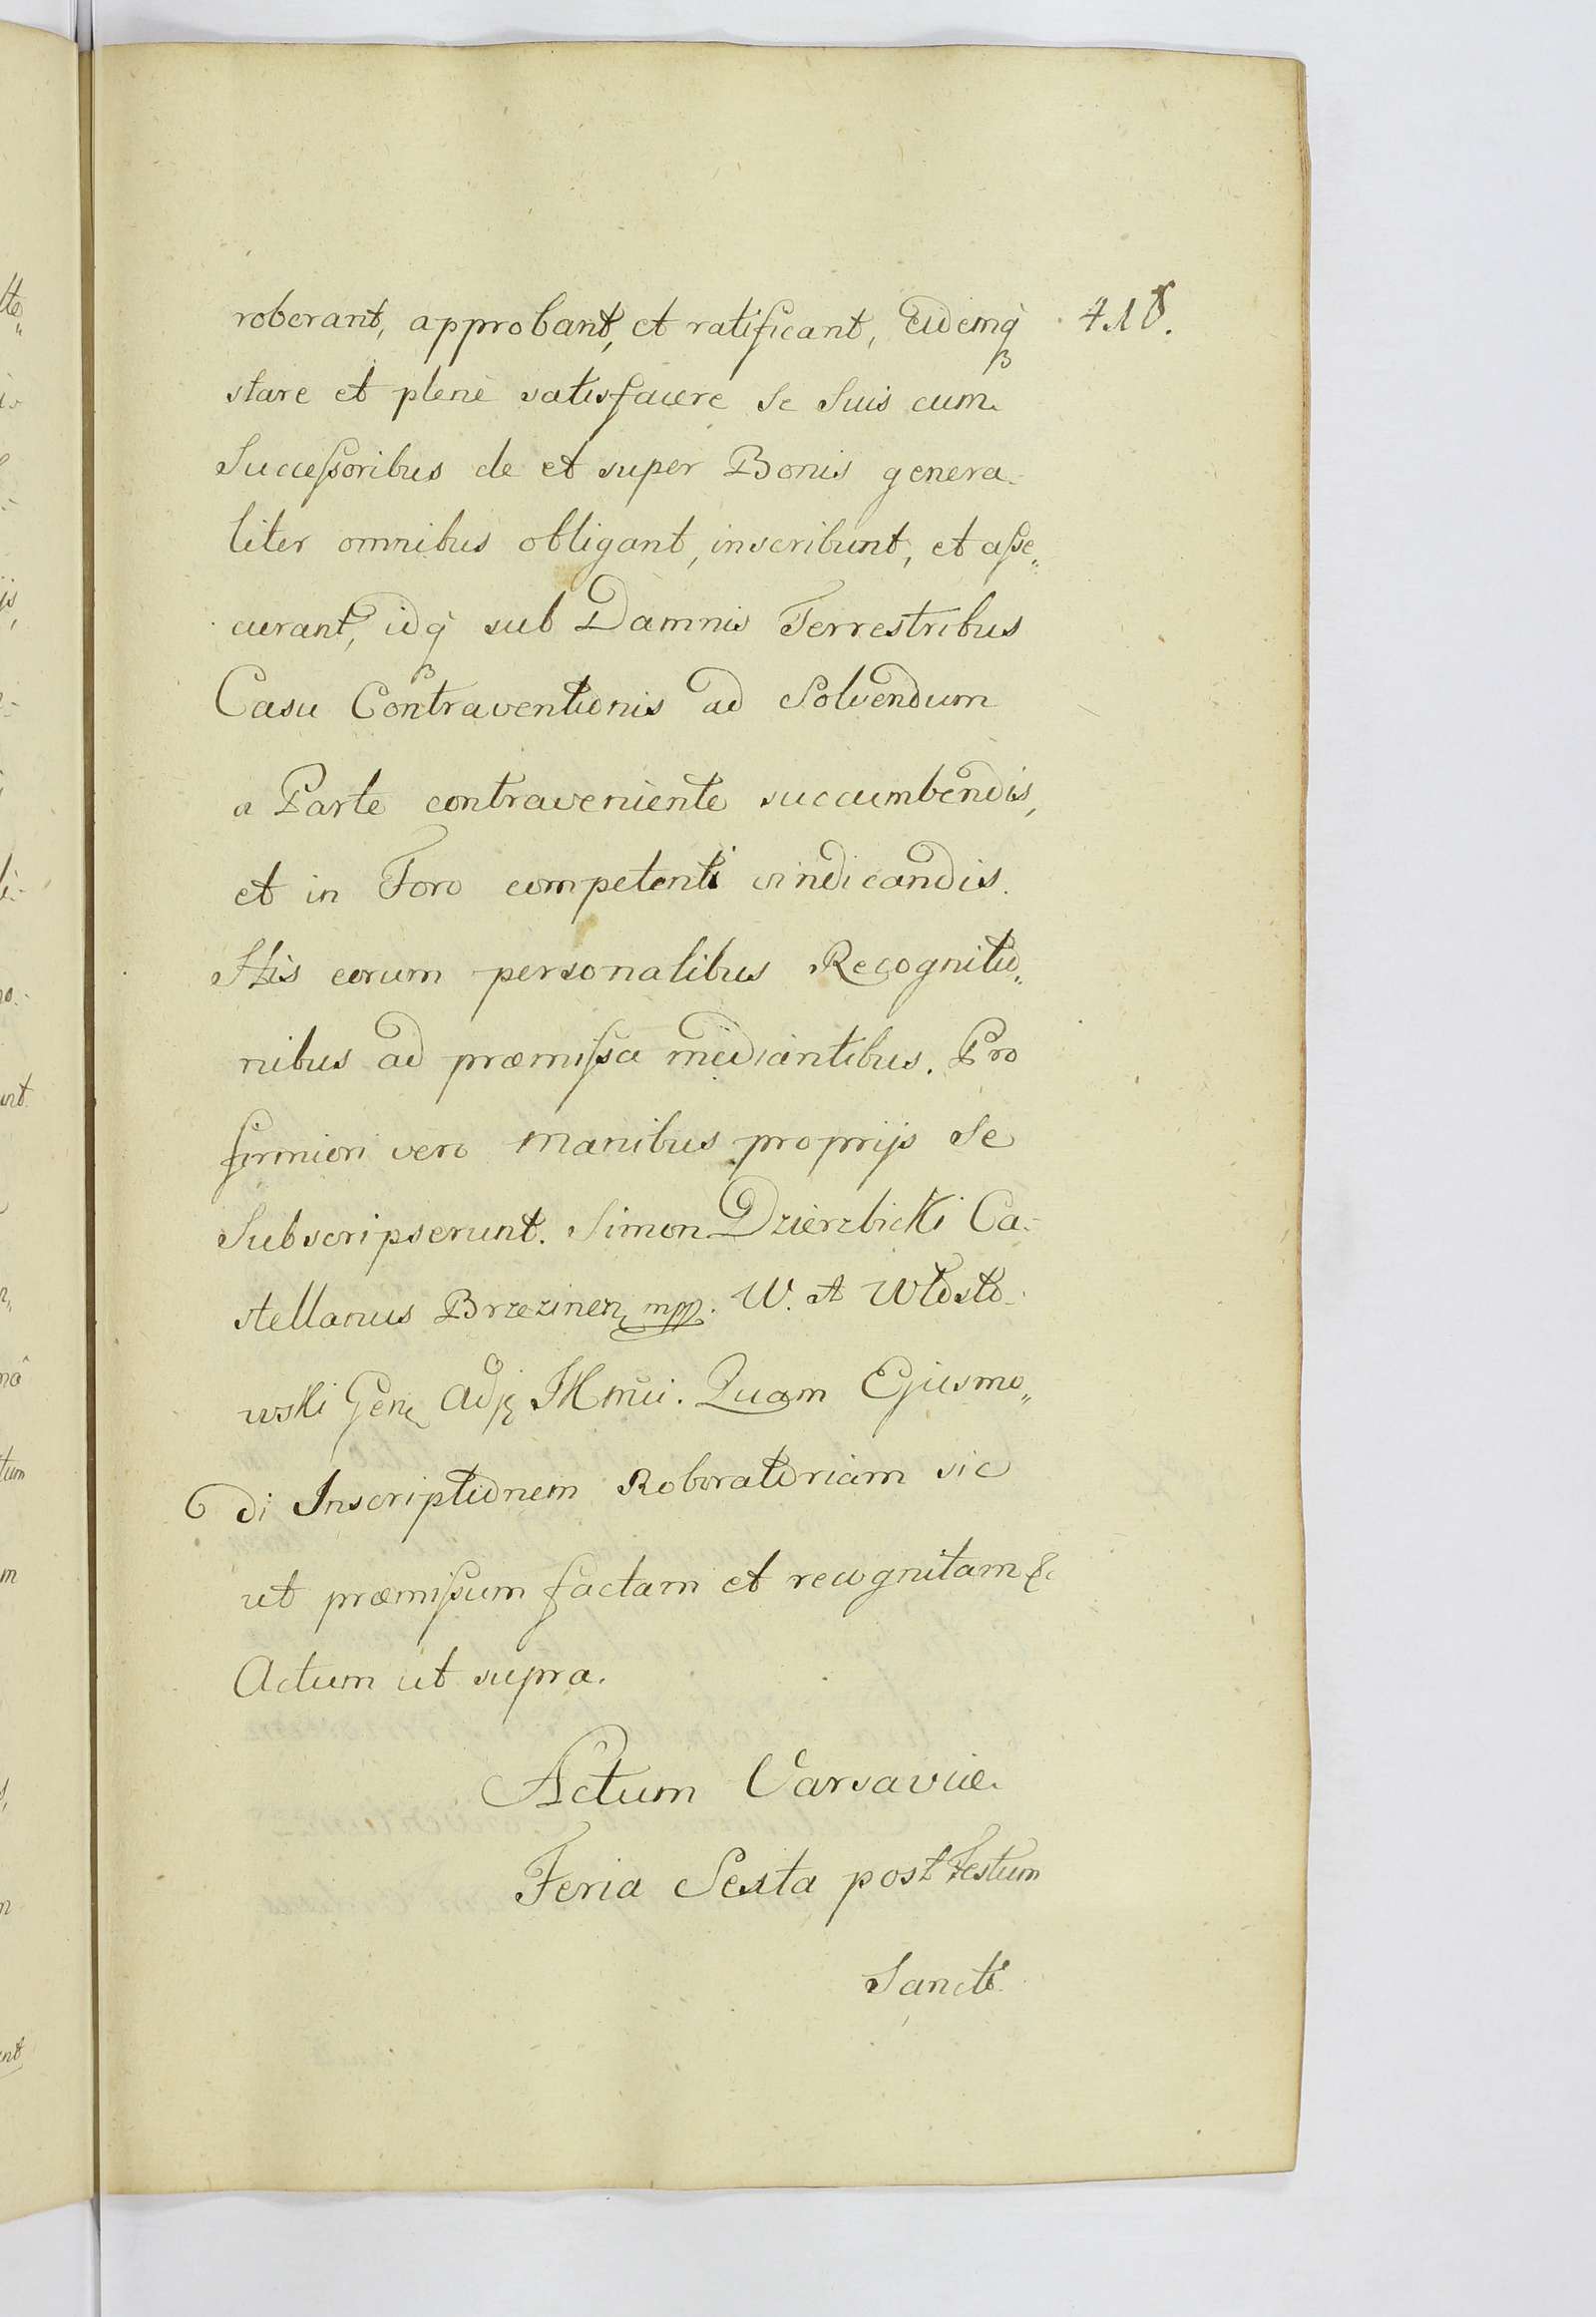 roborant, approbant, et ratificant, Eidemq̀ʒ 418.
stare et plenè satisfacere se Suis cum
Succeſsoribus de et super Bonis genera-
liter omnibus obligant, inscribunt, et aſse„
curant, idq̀ʒ sub Damnis Terrestribus
Casu Contraventionis ad Solvendum
a Parte contraveniente succumbendis,
et in Foro competenti vindicandis.
His eorum personalibus Recognitio„
nibus ad præmiſsa mediantibus. Pro
firmiori vero manibus proprijs se
Subscripserunt. Simon Dzierzbicki Ca-
stellanus Brzezinen mpp. W. A Włosto-
wski Gen Adj. Quam Ejusmo„
di Inscriptionem Roboratoriam sic
ut præmiſsum factam et recognitam &
Actum ut supra.
Actum Varsaviæ
Feria Sexta post Festum
Sancti